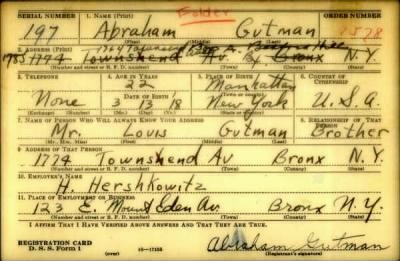 Folder
SERIAL NUMBER 1. NAME (Print) ORDER NUMBER
197 Abraham Gutman 2578
2. ADDRESS (Print)
1774 Townshend Av Bx. Bronx N.Y.
(Number and street or R. F. D. number) (Town) (County) (State)
3. TELEPHONE 4. AGE IN YEARS 5. PLACE OF BIRTH 6. COUNTRY OF CITIZENSHIP
22 Manhattan
DATE OF BIRTH (Town or county)
None 3 13 18 New York U.S.A.
(Mo.) (Day) (Yr.) (State or country)
7. NAME OF PERSON WHO WILL ALWAYS KNOW YOUR ADDRESS 8. RELATIONSHIP OF THAT PERSON
Mr. Louis Gutman Brother
(Mr., Mrs., Miss) (First) (Middle) (Last)
9. ADDRESS OF THAT PERSON
1774 Townshend Av Bronx N.Y.
(Number and street or R. F. D. number) (Town) (County) (State)
10. EMPLOYER'S NAME
H. Hershkowitz
11. PLACE OF EMPLOYMENT OR BUSINESS
123 E. Mount Eden Av. Bronx N.Y.
(Number and street or R. F. D. number) (Town) (County) (State)
I AFFIRM THAT I HAVE VERIFIED ABOVE ANSWERS AND THAT THEY ARE TRUE.
REGISTRATION CARD
D. S. S. Form 1 (over) 16—17105 Abraham Gutman
(Registrant's signature)